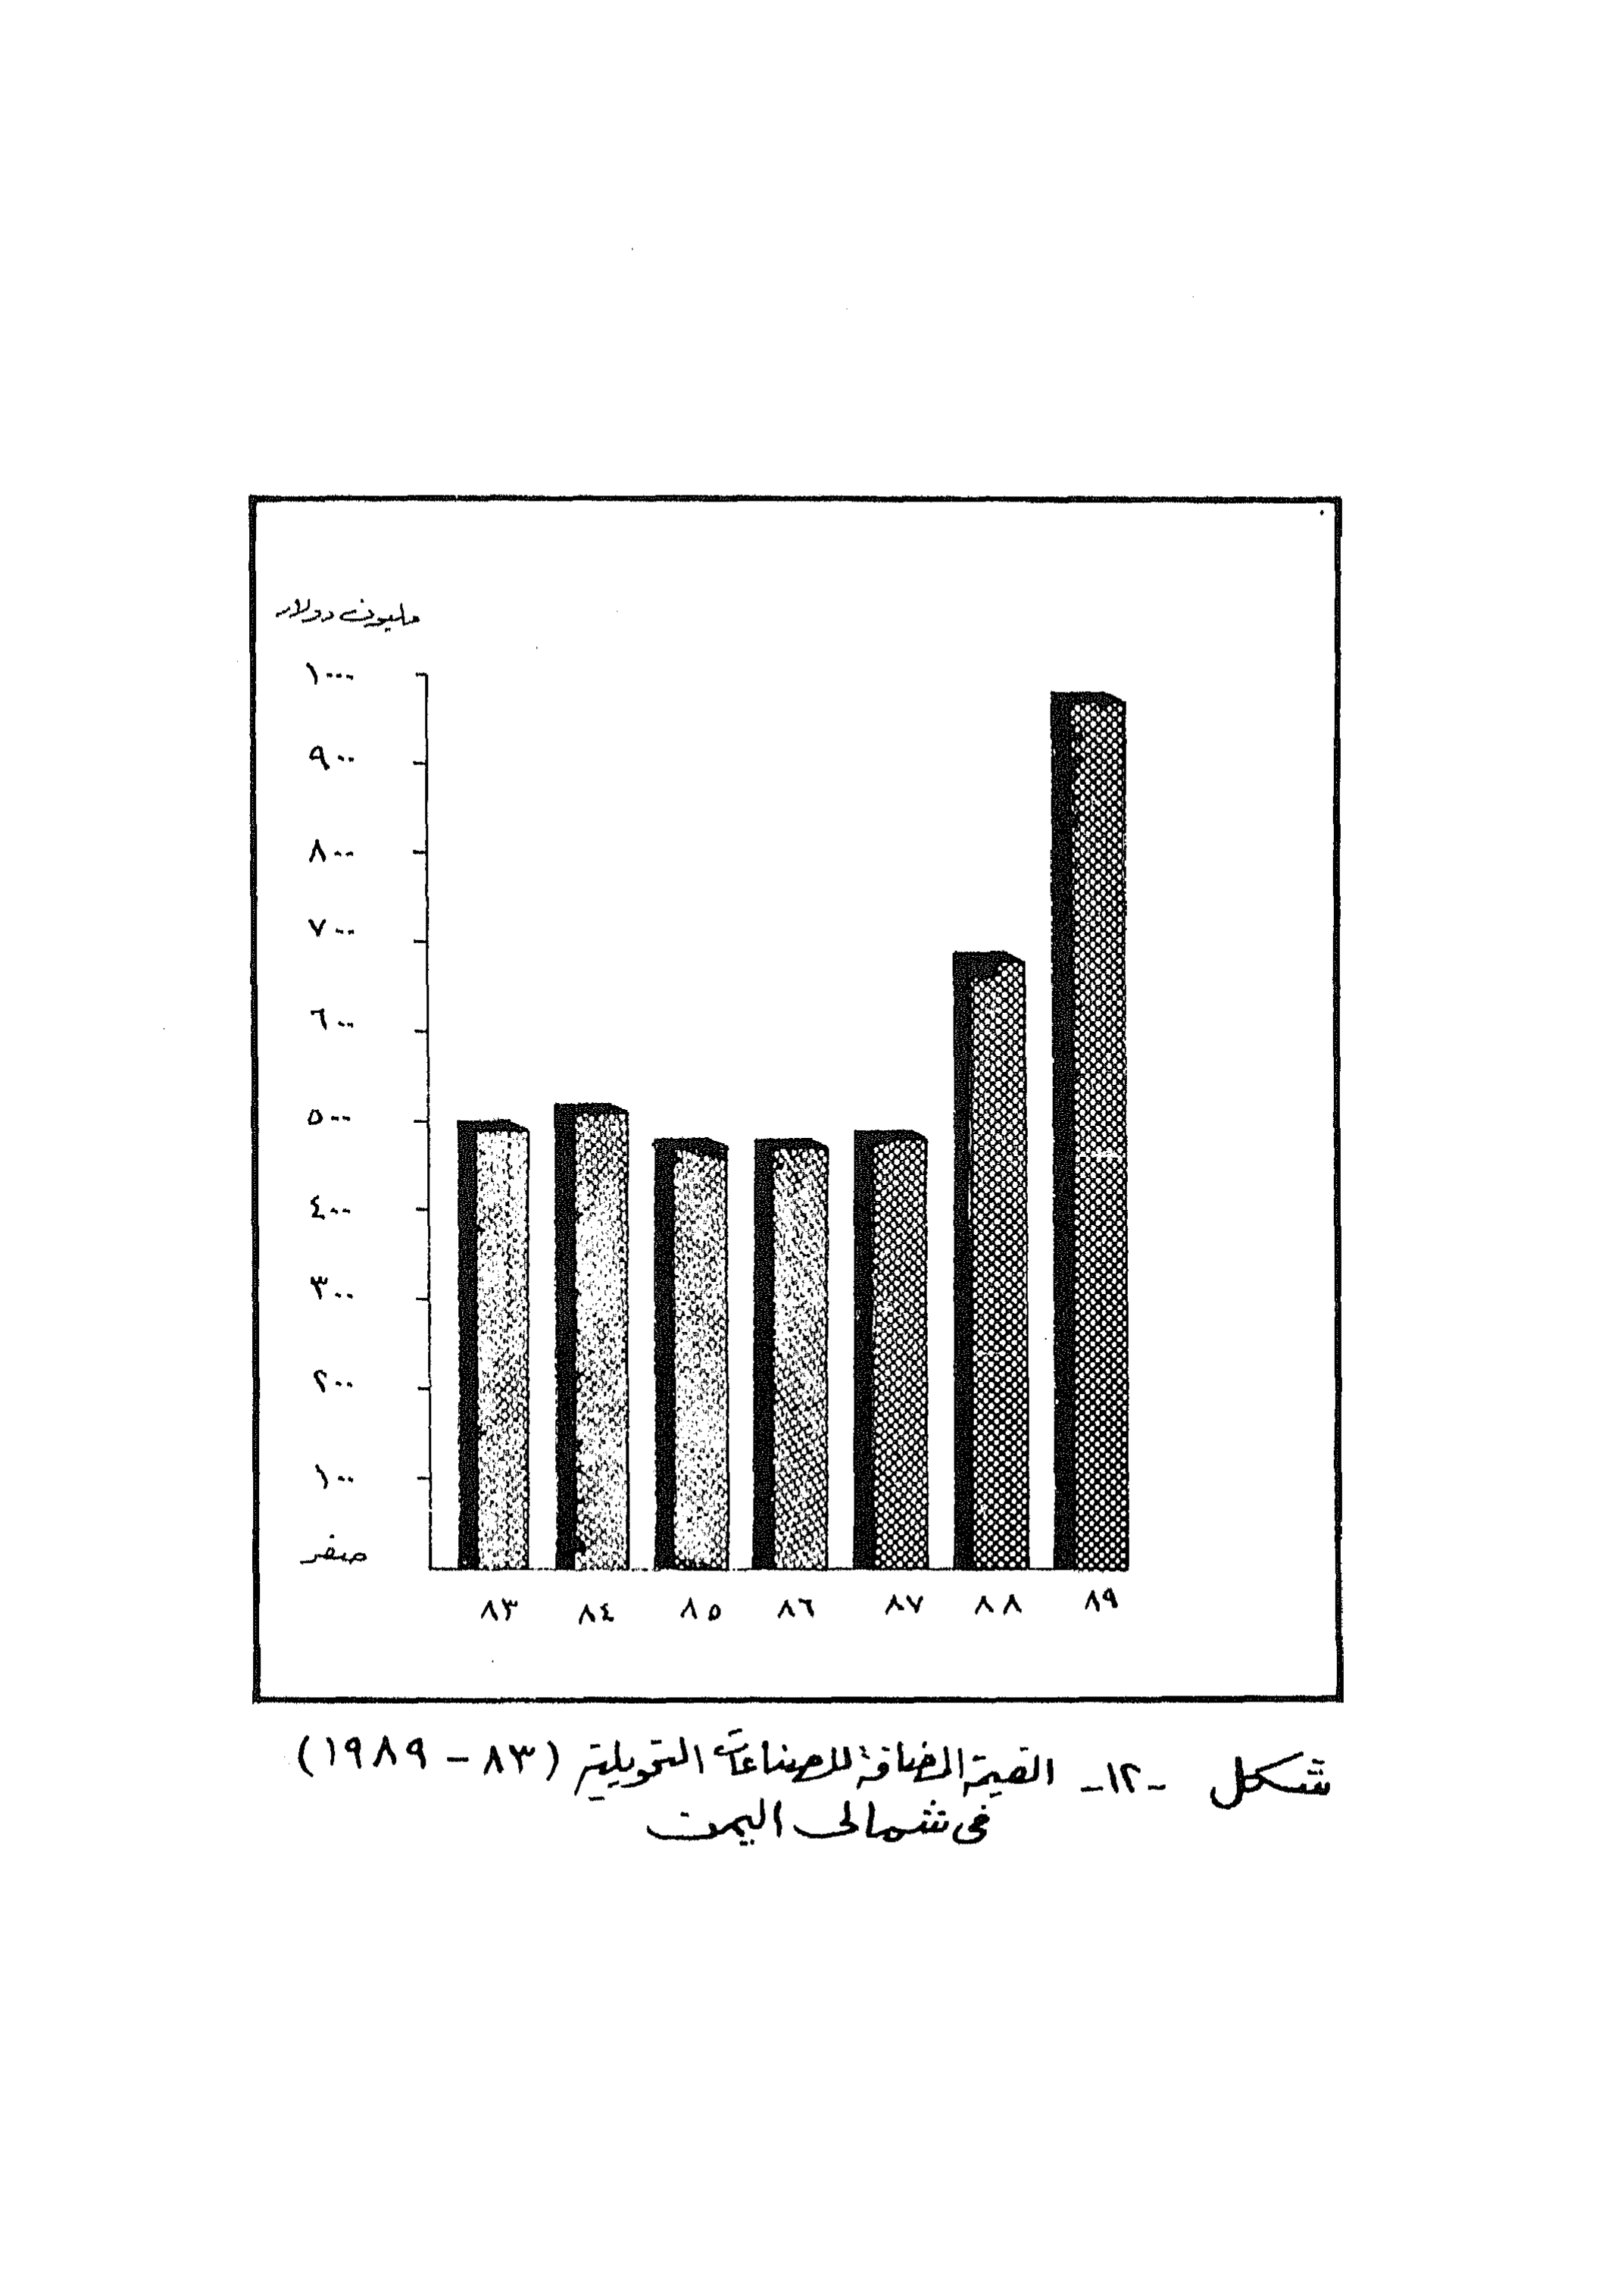 مليون دولار
١٠٠٠
٩٠٠
٨٠٠
٧٠٠
٦٠٠
٥٠٠
٤٠٠
٣٠٠
٢٠٠
١٠٠
صفر
٨٣ ٨٤ ٨٥ ٨٦ ٨٧ ٨٨ ٨٩
شكل -١٢- القيمة المضافة للصناعات التحويلية (٨٣ - ١٩٨٩)
فى شمالى اليمن